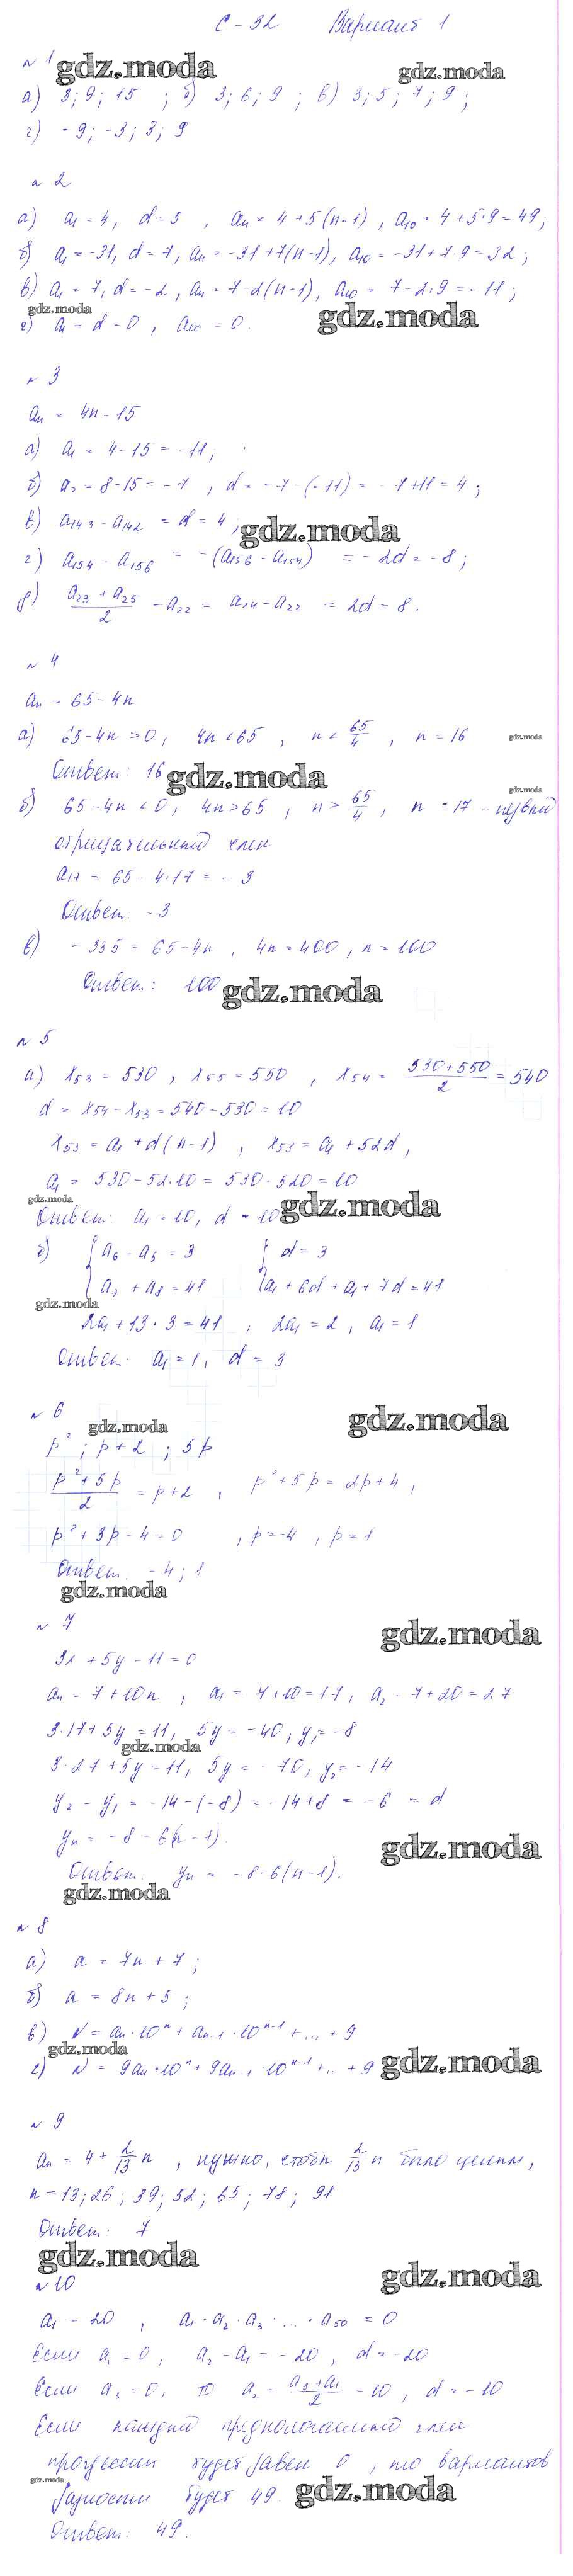 С-32 Вариант 1
№1
gdz.moda gdz.moda
а) 3; 9; 15 ; б) 3; 6; 9 ; в) 3; 5; 7; 9;
г) -9; -3; 3; 9
№2
а) a₁ = 4, d = 5 , aₙ = 4 + 5(n-1) , a₁₀ = 4 + 5·9 = 49;
б) a₁ = -31, d = 7, aₙ = -31 + 7(n-1), a₁₀ = -31 + 7·9 = 32;
в) a₁ = 7, d = -2, aₙ = 7 - 2(n-1), a₁₀ = 7 - 2·9 = -11;
gdz.moda gdz.moda
г) a₁ = d = 0 , a₁₀ = 0.
№3
aₙ = 4n - 15
а) a₁ = 4 - 15 = -11;
б) a₂ = 8 - 15 = -7 , d = -7 - (-11) = -7 + 11 = 4;
в) a₁₄₃ - a₁₄₂ = d = 4;
gdz.moda
г) a₁₅₄ - a₁₅₆ = -(a₁₅₆ - a₁₅₄) = -2d = -8;
д) (a₂₃ + a₂₅)/2 - a₂₂ = a₂₄ - a₂₂ = 2d = 8.
№4
aₙ = 65 - 4n
а) 65 - 4n > 0, 4n < 65 , n < 65/4 , n = 16
gdz.moda
Ответ: 16
gdz.moda gdz.moda
б) 65 - 4n < 0, 4n > 65 , n > 65/4 , n = 17 - первый
отрицательный член
a₁₇ = 65 - 4·17 = -3
Ответ: -3
в) -335 = 65 - 4n , 4n = 400, n = 100
Ответ: 100
gdz.moda
№5
а) x₅₃ = 530 , x₅₅ = 550 , x₅₄ = (530 + 550)/2 = 540
d = x₅₄ - x₅₃ = 540 - 530 = 10
x₅₃ = a₁ + d(n-1) , x₅₃ = a₁ + 52d,
a₁ = 530 - 52·10 = 530 - 520 = 10
gdz.moda gdz.moda
Ответ: a₁ = 10, d = 10
б) { a₆ - a₅ = 3 { d = 3
a₇ + a₈ = 41 a₁ + 6d + a₁ + 7d = 41
gdz.moda
2a₁ + 13·3 = 41 , 2a₁ = 2, a₁ = 1
Ответ: a₁ = 1, d = 3
№6
gdz.moda gdz.moda
p² ; p + 2 ; 5p
(p² + 5p)/2 = p + 2 , p² + 5p = 2p + 4,
p² + 3p - 4 = 0 , p = -4 , p = 1
Ответ: -4; 1
gdz.moda
№7
gdz.moda
3x + 5y - 11 = 0
aₙ = 7 + 10n , a₁ = 7 + 10 = 17, a₂ = 7 + 20 = 27
3·17 + 5y = 11, 5y = -40, y₁ = -8
gdz.moda
3·27 + 5y = 11, 5y = -70, y₂ = -14
y₂ - y₁ = -14 - (-8) = -14 + 8 = -6 = d
yₙ = -8 - 6(n-1).
gdz.moda
Ответ: yₙ = -8 - 6(n-1).
gdz.moda
№8
а) a = 7n + 7;
б) a = 8n + 5;
в) N = aₙ·10ⁿ + aₙ₋₁·10ⁿ⁻¹ + ... + 9
gdz.moda gdz.moda
г) N = 9aₙ·10ⁿ + 9aₙ₋₁·10ⁿ⁻¹ + ... + 9
№9
aₙ = 4 + 2/13 n , нужно, чтобы 2/13 n было целым,
n = 13; 26; 39; 52; 65; 78; 91
Ответ: 7
gdz.moda gdz.moda
№10
a₁ = 20 , a₁·a₂·a₃·...·a₅₀ = 0
Если a₂ = 0, a₂ - a₁ = -20 , d = -20
Если a₃ = 0, то a₂ = (a₃ + a₁)/2 = 10, d = -10
Если каждый предполагаемый член
прогрессии будет равен 0, то вариантов
gdz.moda gdz.moda
разности будет 49.
Ответ: 49.